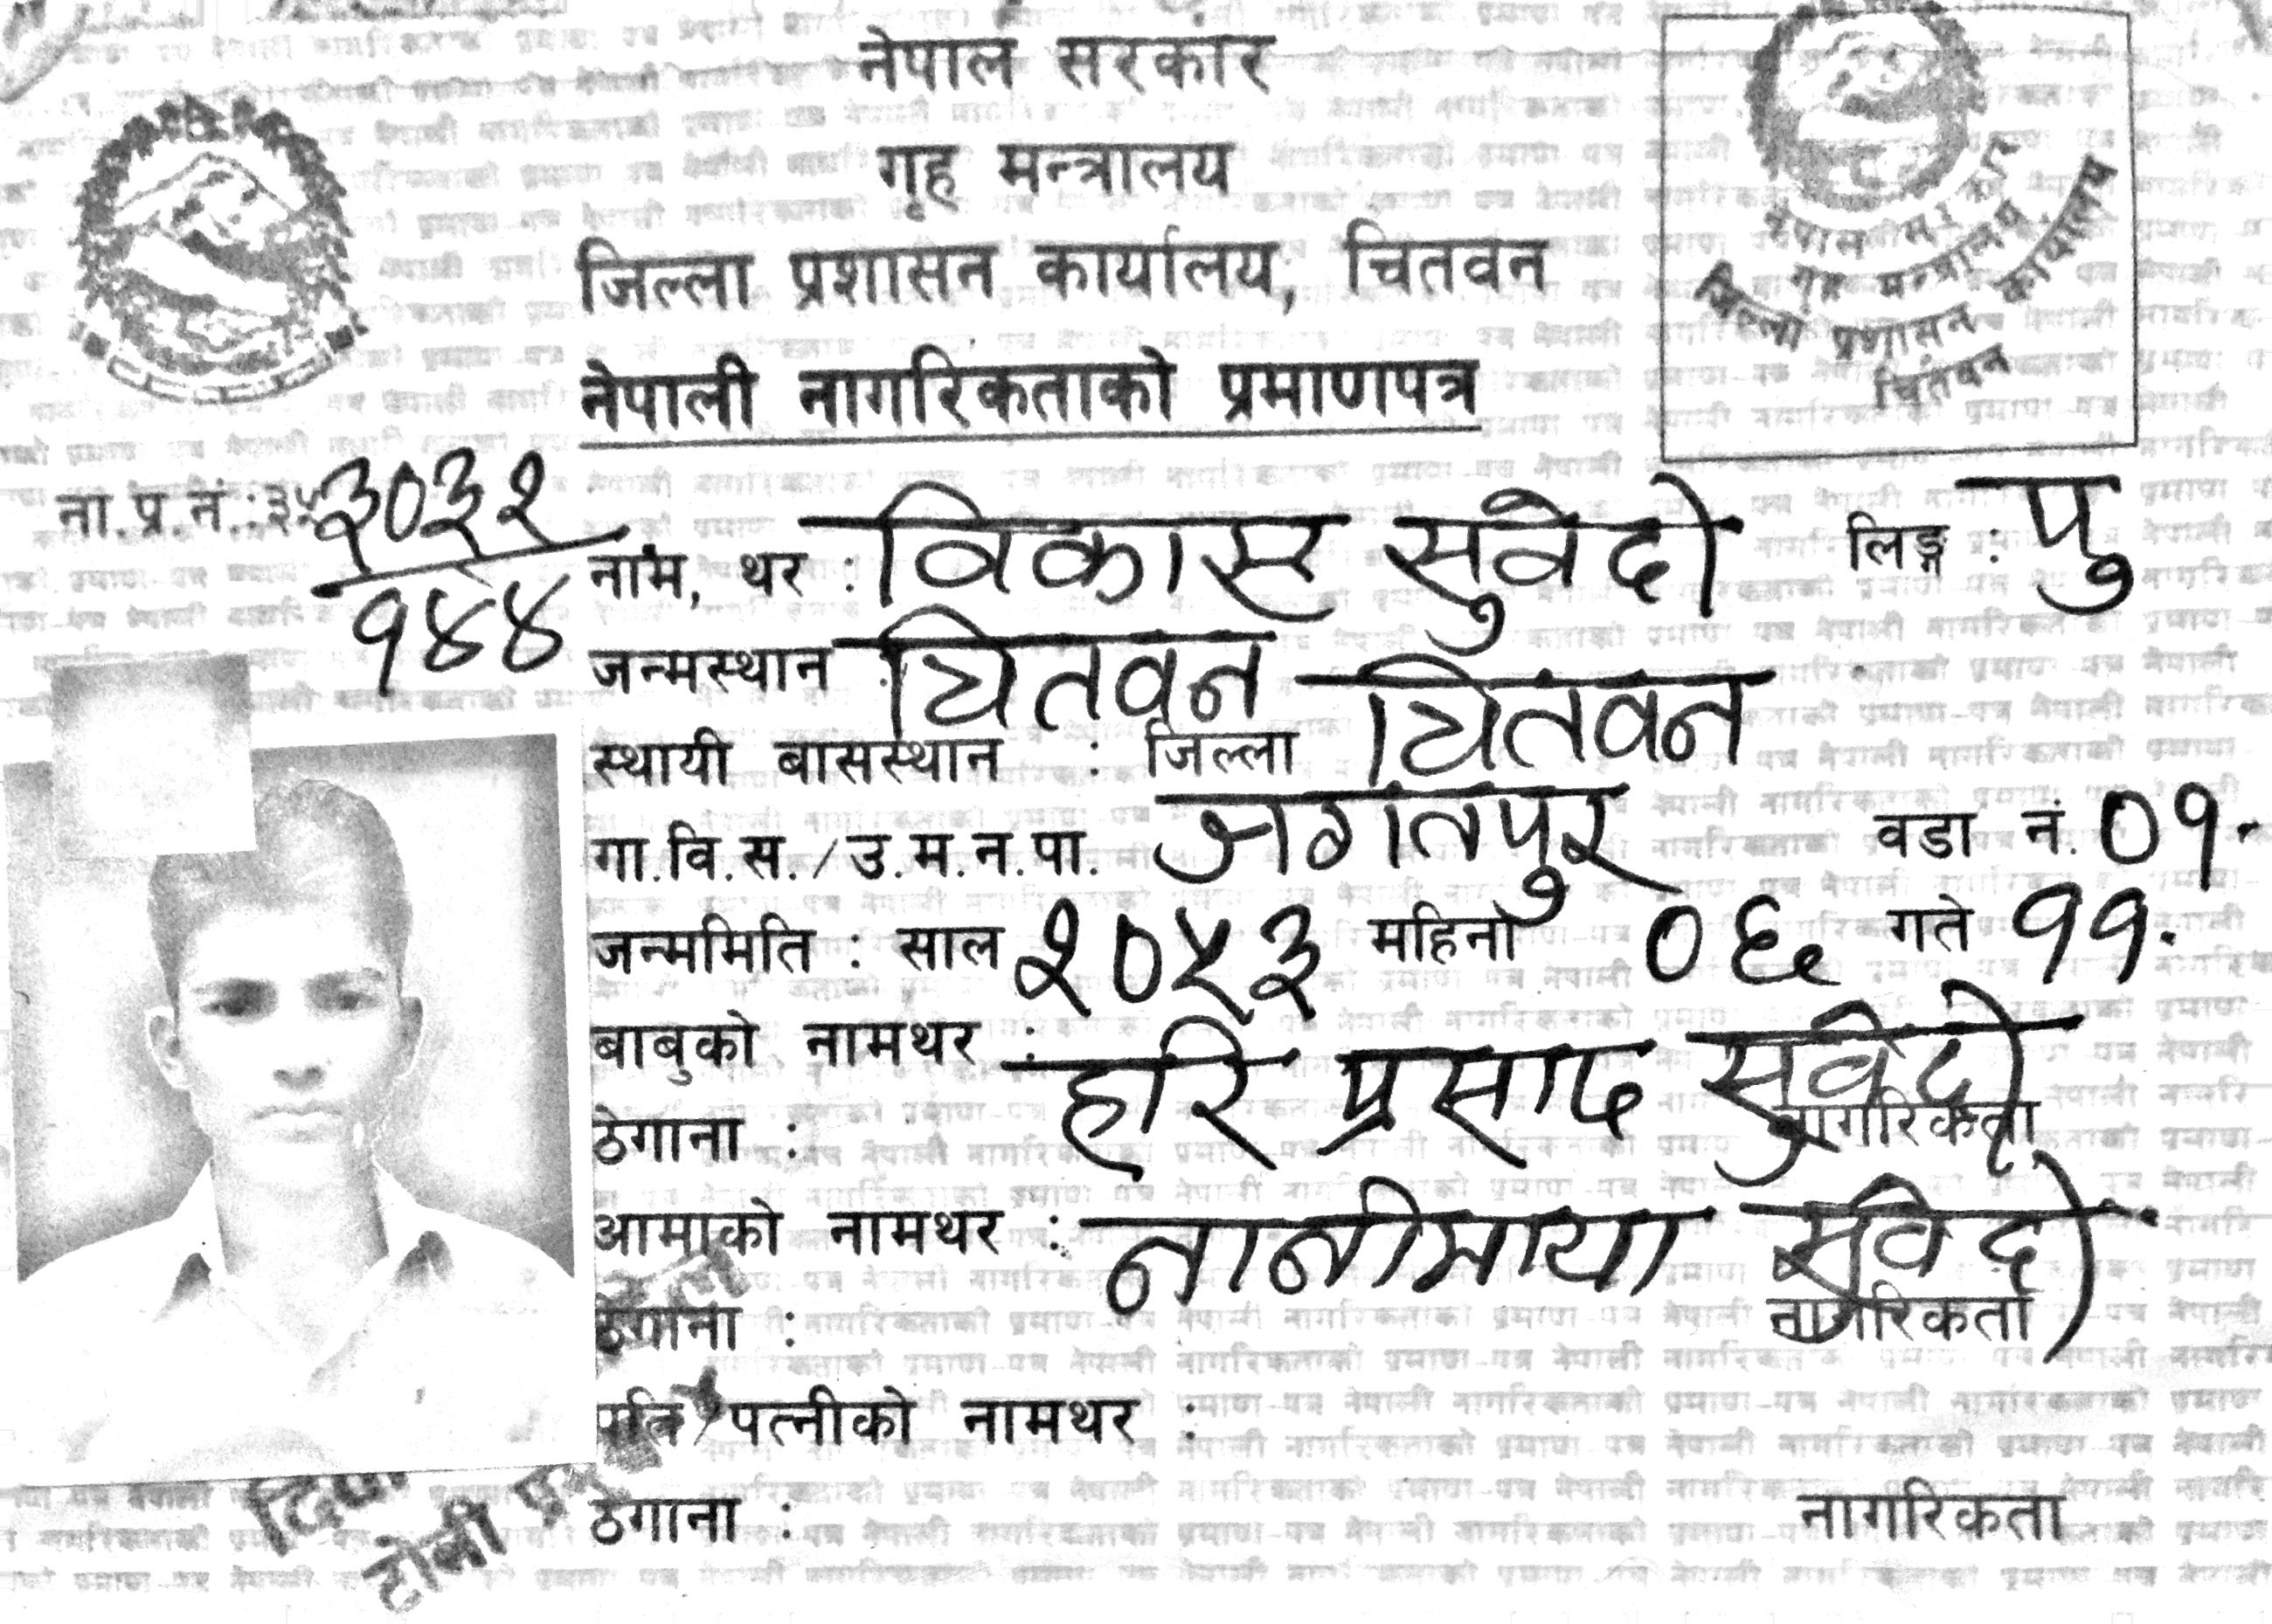 नेपाल सरकार
गृह मन्त्रालय
जिल्ला प्रशासन कार्यालय, चितवन
नेपाली नागरिकताको प्रमाणपत्र
नेपाल सरकार
गृह मन्त्रालय
जिल्ला प्रशासन कार्यालय
चितवन
ना.प्र.नं.: ३५ ३०३२
१४४
नाम, थर : विकास सुवेदी लिङ्ग : पु
जन्मस्थान : चितवन
स्थायी बासस्थान : जिल्ला चितवन
गा.वि.स./उ.म.न.पा. जगतपुर वडा नं. ०१.
जन्ममिति : साल २०५३ महिना ०६ गते ११.
बाबुको नामथर : हरि प्रसाद सुवेदी
ठेगाना : नागरिकता
आमाको नामथर : नानीमाया सुवेदी
ठेगाना : नागरिकता
पति/पत्नीको नामथर :
ठेगाना : नागरिकता
टोली